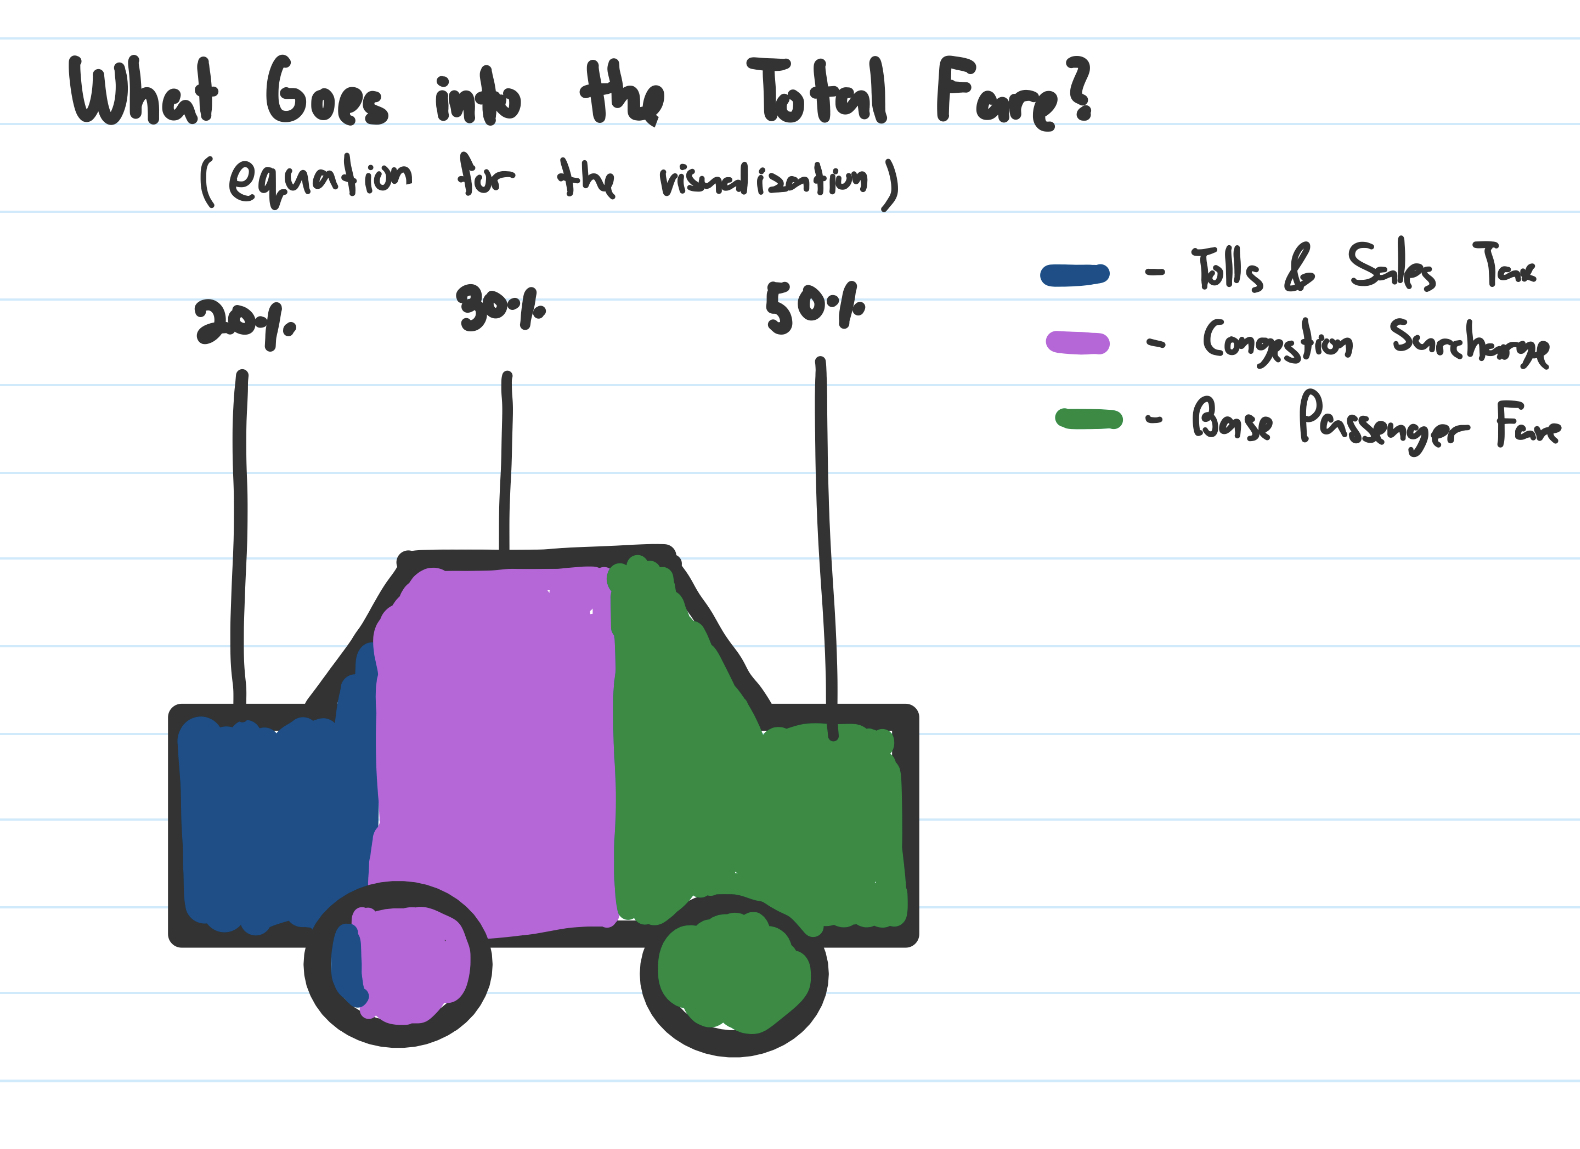 What Goes into the Total Fare?
(equation for the visualization)
20% 30% 50%
- Tolls & Sales Tax
- Congestion Surcharge
- Base Passenger Fare